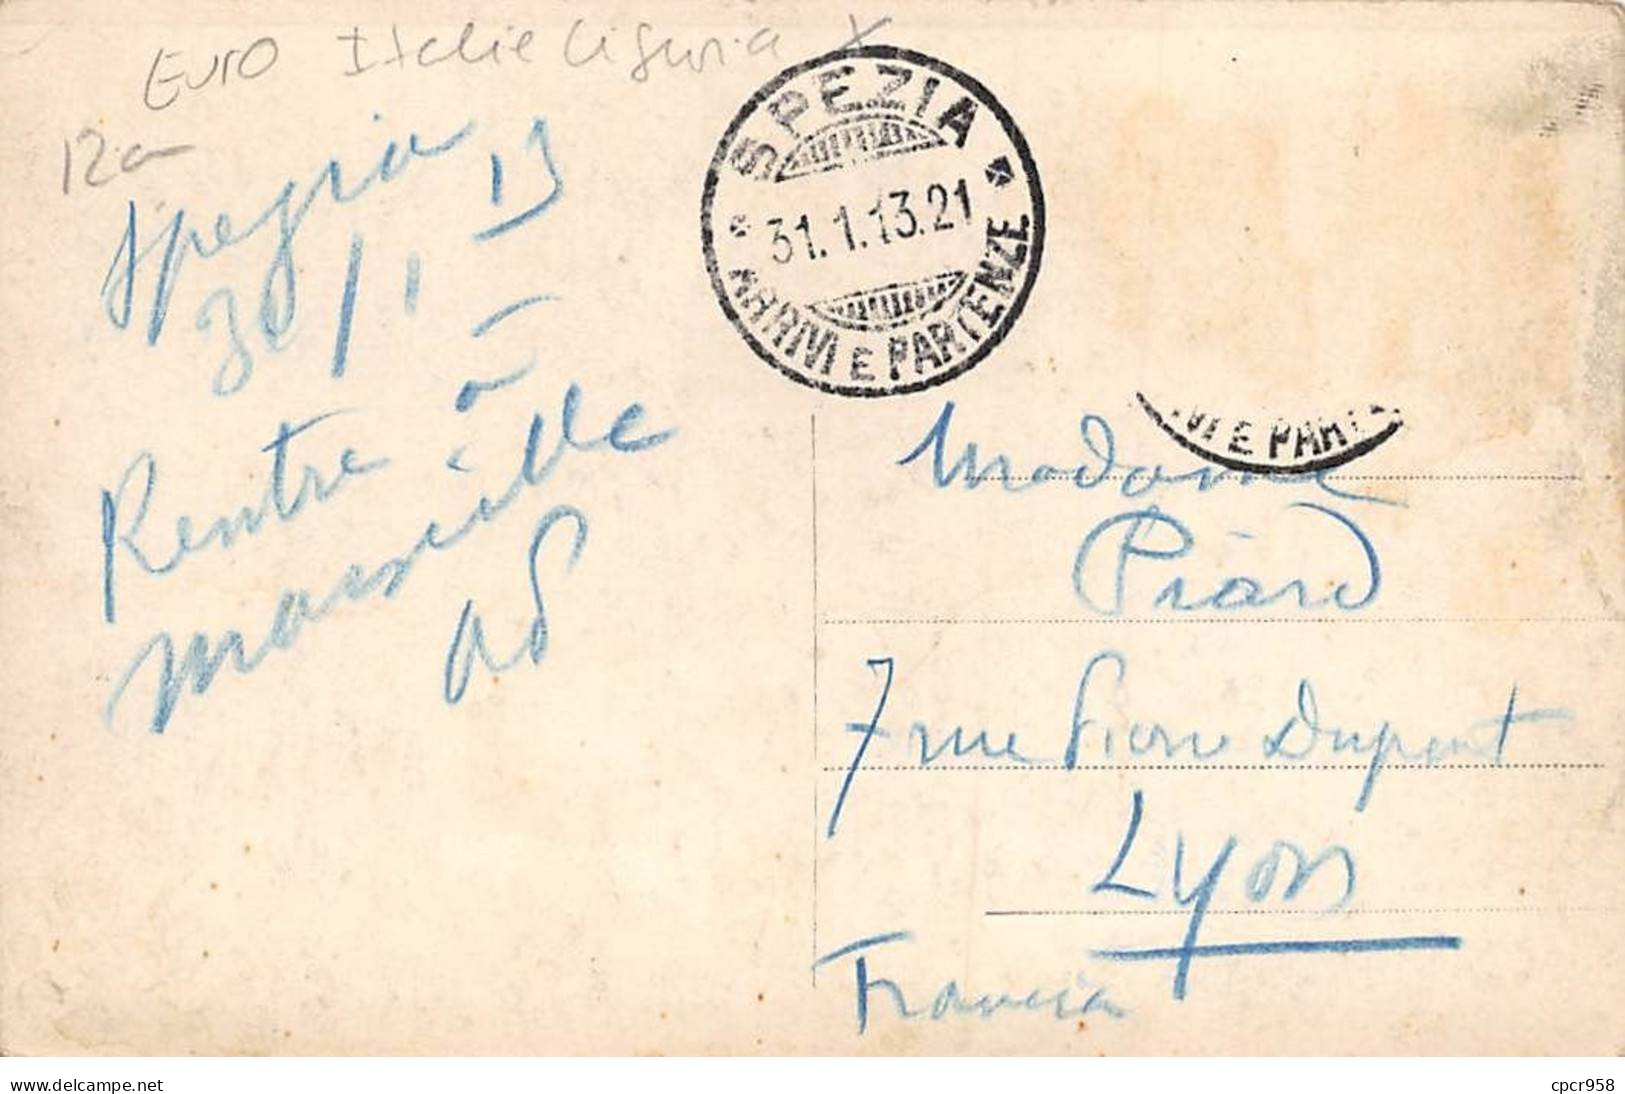 Euro Italie Liguria X
12 a
Spezia
30/1 13
Rentre à
Marseille
SPEZIA
31.1.13.21
ARRIVI E PARTENZE
IVI E PART
Madame
Piard
7 rue Pierre Dupont
Lyon
Francia
www.delcampe.net
cpcr958